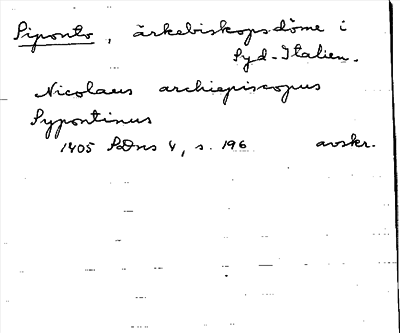 Siponto, ärkebiskopsdöme i
Syd-Italien.
Nicolaus archiepiscopus
Sypontinus
1405 SDns 4, s. 196 avskr.